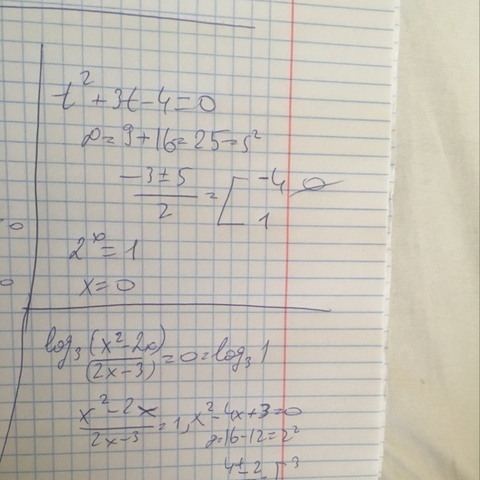 t² + 3t - 4 = 0
D = 9 + 16 = 25 = 5²
(-3 ± 5)/2 = [ -4 ∅
1
2ˣ = 1
x = 0
log₃ (x² - 2x)/(2x - 3) = 0 = log₃ 1
(x² - 2x)/(2x - 3) = 1, x² - 4x + 3 = 0
D = 16 - 12 = 2²
4 ± 2 [ 3